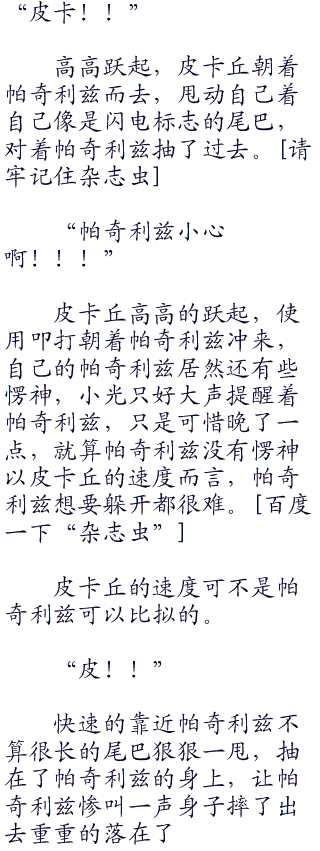 “皮卡！！”
高高跃起，皮卡丘朝着
帕奇利兹而去，甩动自己着
自己像是闪电标志的尾巴，
对着帕奇利兹抽了过去。[请
牢记住杂志虫]
“帕奇利兹小心
啊！！！”
皮卡丘高高的跃起，使
用叩打朝着帕奇利兹冲来，
自己的帕奇利兹居然还有些
愣神，小光只好大声提醒着
帕奇利兹，只是可惜晚了一
点，就算帕奇利兹没有愣神
以皮卡丘的速度而言，帕奇
利兹想要躲开都很难。[百度
一下“杂志虫”]
皮卡丘的速度可不是帕
奇利兹可以比拟的。
“皮！！”
快速的靠近帕奇利兹不
算很长的尾巴狠狠一甩，抽
在了帕奇利兹的身上，让帕
奇利兹惨叫一声身子摔了出
去重重的落在了